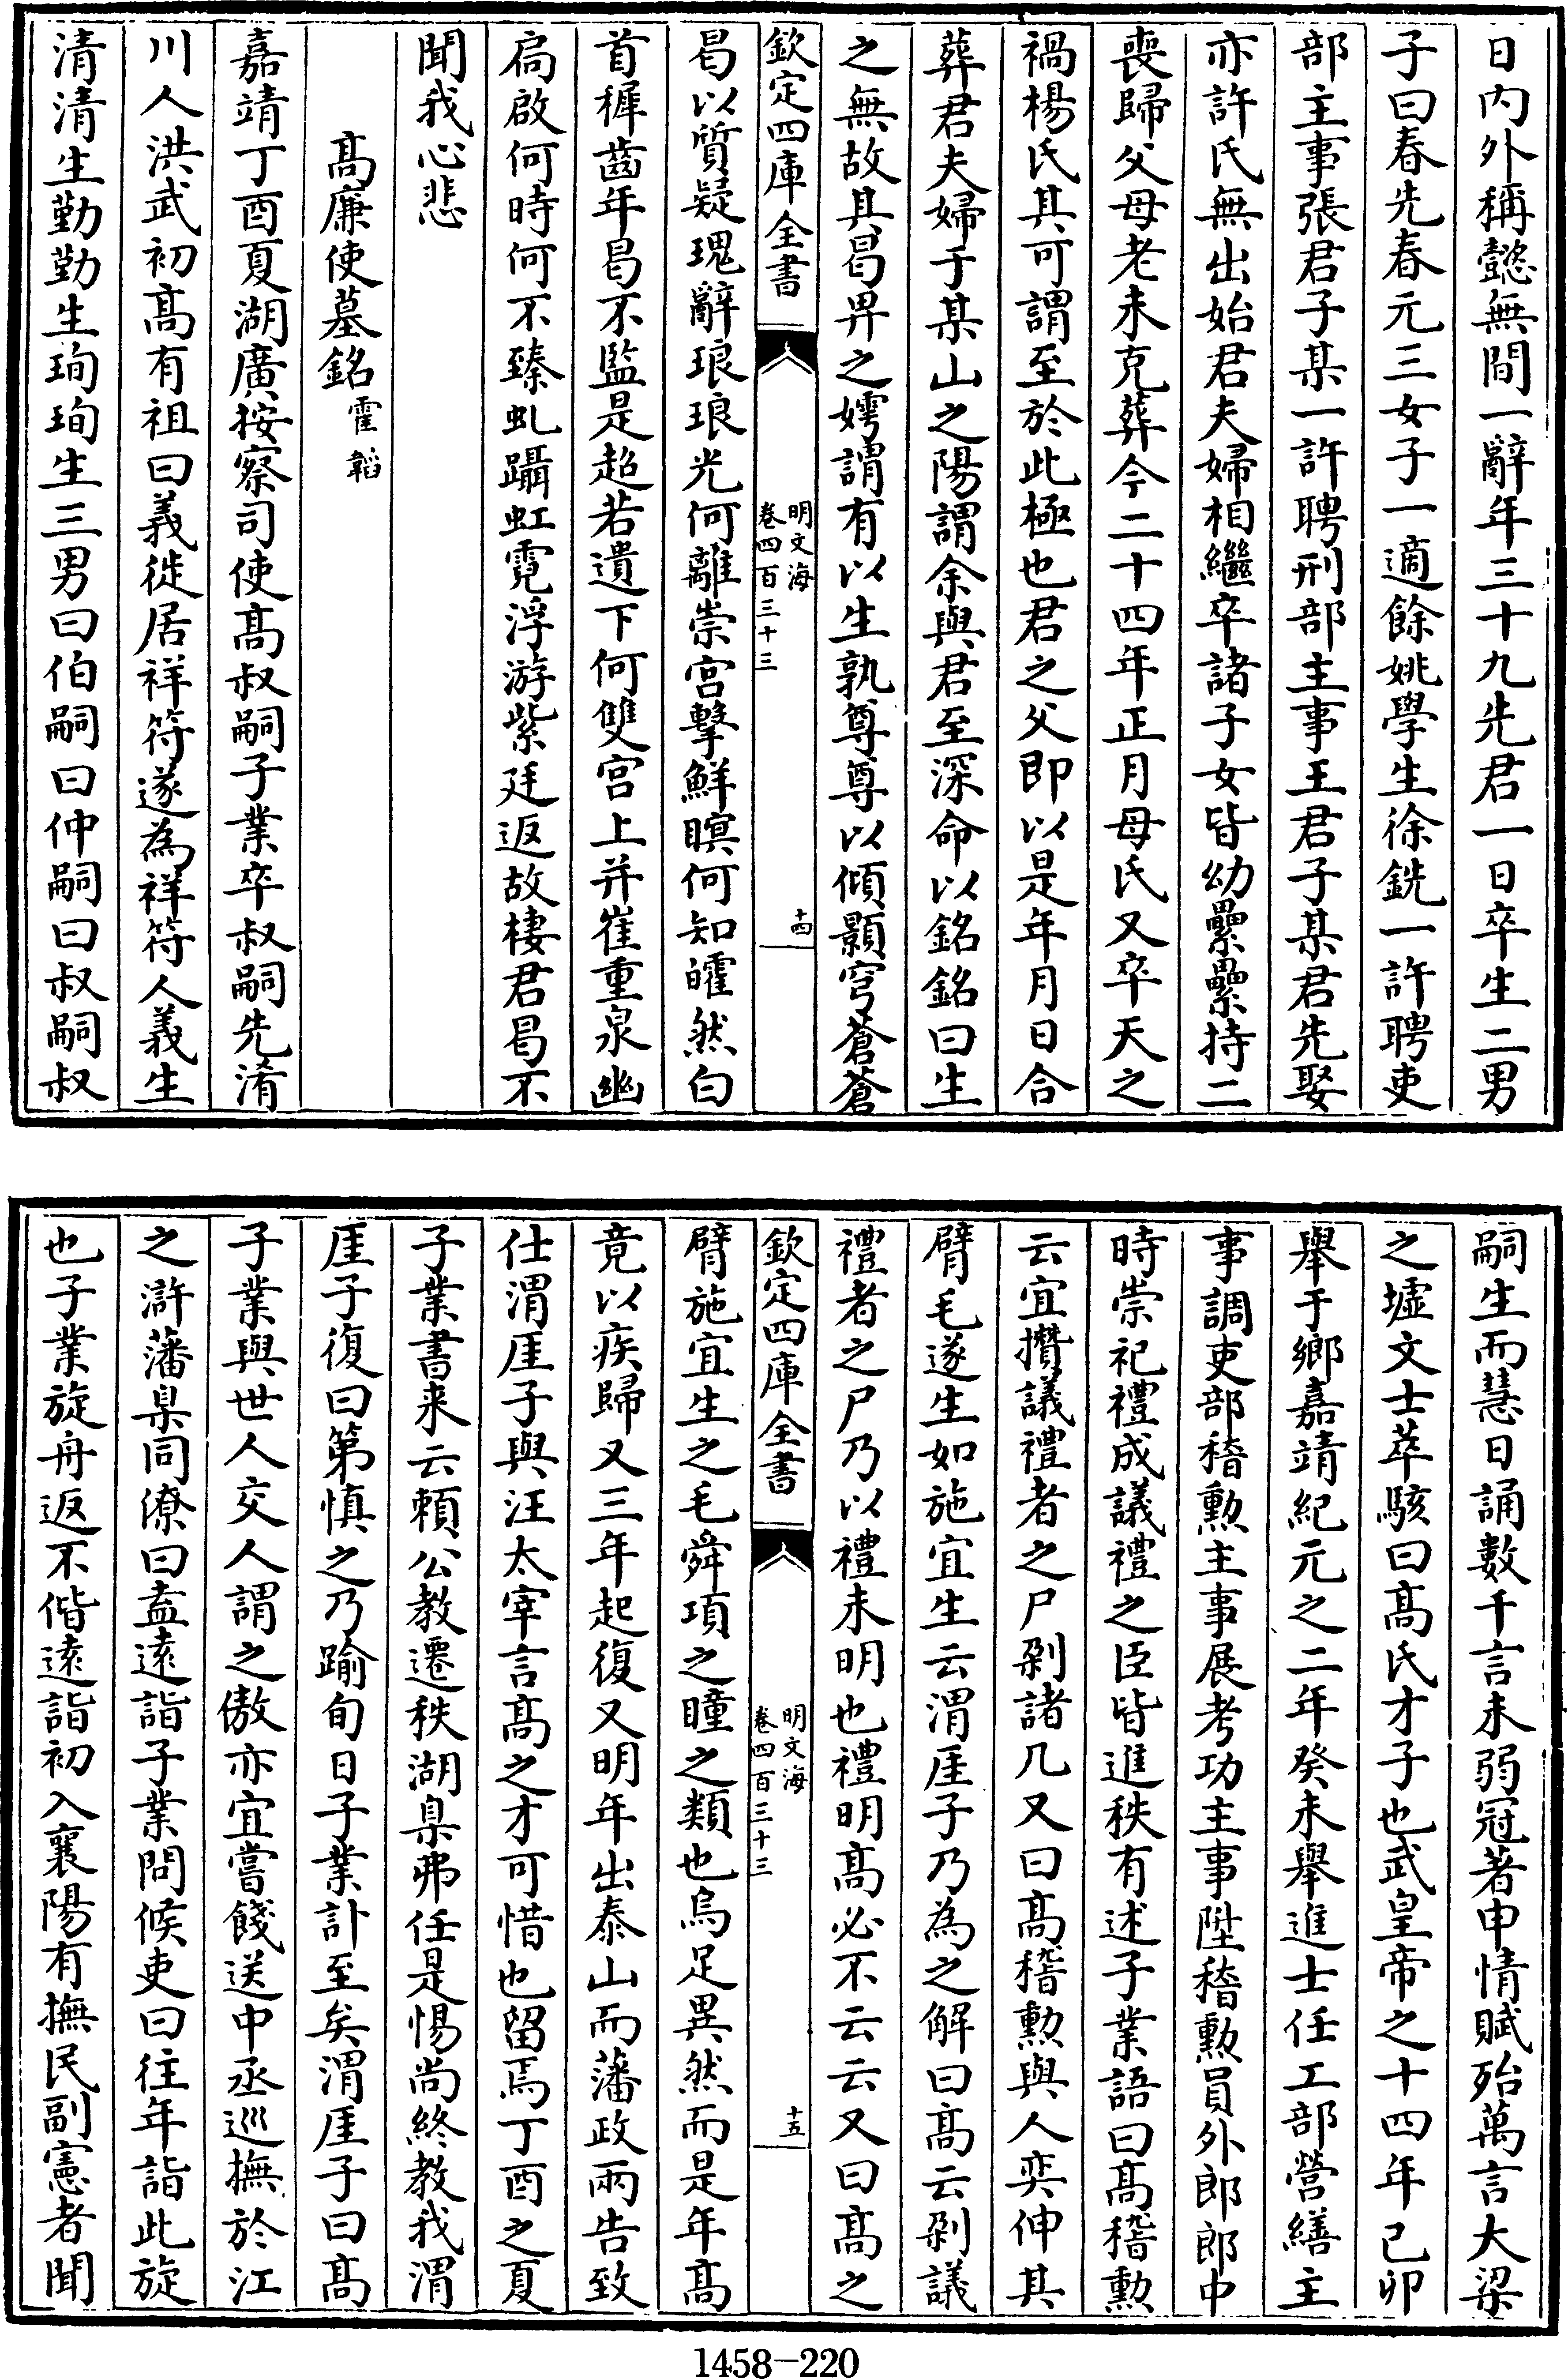 日内外稱懿無間一辭年三十九先君一日卒生二男
子曰春先春元三女子一適餘姚學生徐銑一許聘吏
部主事張君子某一許聘刑部主事王君子某君先娶
亦許氏無出始君夫婦相繼卒諸子女皆幼纍纍持二
喪歸父母老未克葬今二十四年正月母氏又卒天之
禍楊氏其可謂至於此極也君之父即以是年月日合
葬君夫婦于某山之陽謂余與君至深命以銘銘曰生
之無故其曷畀之嫮謂有以生孰尊尊以傾顥穹蒼蒼
欽定四庫全書
明文海
卷四百三十三
十四
曷以質疑瑰辭琅琅光何離崇宫擊鮮瞑何知皬然白
首穉齒年曷不監是超若遺下何雙宫上并崔重泉幽
扃啟何時何不臻虬躡虹霓浮游紫廷返故棲君曷不
聞我心悲
髙廉使墓銘 霍韜
嘉靖丁酉夏湖廣按察司使髙叔嗣子業卒叔嗣先淆
川人洪武初髙有祖曰義徙居祥符遂為祥符人義生
清清生勤勤生珣珣生三男曰伯嗣曰仲嗣曰叔嗣叔
嗣生而慧日誦數千言未弱冠著申情賦殆萬言大梁
之墟文士萃駭曰髙氏才子也武皇帝之十四年己卯
舉于鄉嘉靖紀元之二年癸未舉進士任工部營繕主
事調吏部稽勲主事展考功主事陞稽勲員外郎郎中
時崇祀禮成議禮之臣皆進秩有述子業語曰髙稽勲
云宜攢議禮者之尸剁諸几又曰髙稽勲與人奕伸其
臂毛遂生如施宜生云渭厓子乃為之解曰髙云剁議
禮者之尸乃以禮未明也禮明髙必不云云又曰髙之
欽定四庫全書
明文海
卷四百三十三
十五
臂施宜生之毛舜項之瞳之類也烏足異然而是年髙
竟以疾歸又三年起復又明年出泰山而藩政兩告致
仕渭厓子與汪太宰言髙之才可惜也留焉丁酉之夏
子業書来云頼公教遷秩湖臬弗任是惕尚終教我渭
厓子復曰第慎之乃踰旬日子業訃至矣渭厓子曰髙
子業與世人交人謂之傲亦宜嘗餞送中丞巡撫於江
之滸藩臬同僚曰盍遠詣子業問候吏曰往年詣此旋
也子業旋舟返不偕遠詣初入襄陽有撫民副憲者聞
1458-220